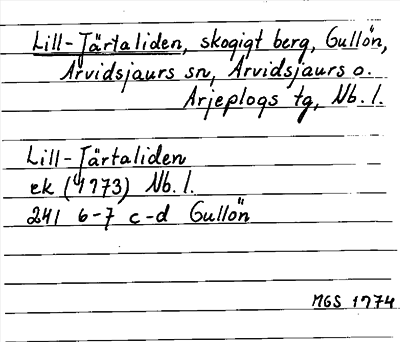 Lill-Tjärtaliden, skogigt berg, Gullön,
Arvidsjaurs sn, Arvidsjaurs o.
Arjeplogs tg, Nb. l.
Lill-Tjärtaliden
ek (1973) Nb. l.
24I 6-7 c-d Gullön
MGS 1974